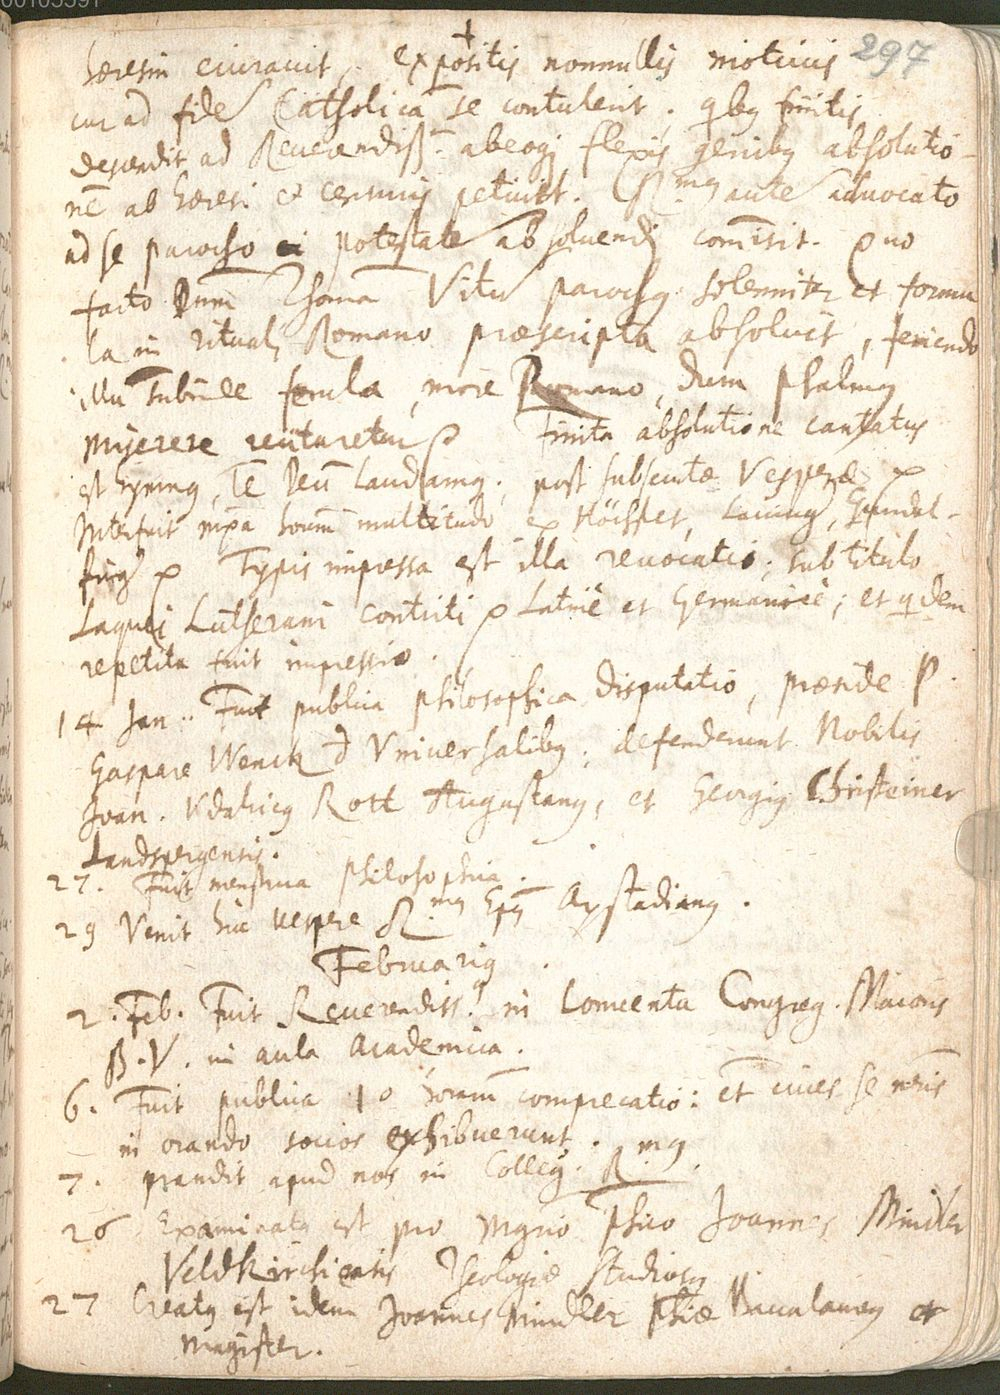 297
hæresin eiuravit, expositis nonnullis motivis
cur ad fidē Catholicā se contulerit. qbꝯ finitis
descendit ad Reverendiss. abeoqꝫ flexis genibꝯ absolutio-
nē ab hæresi & censuris petiuit. Rmꝯ autē advocato
ad se parocho ei potestatē absolvendi com̄isit. quo
facto Dnm̄ Thoma Vitū parochꝯ solenniter et formu
la in rituali Romano præscripta absolvit, feriendo
illū subinde ferula, more Romano, dum psalmꝯ
Miserere recitaretur. Finita absolutione cantatus
est hymnꝯ, Te Deū Laudamꝯ. post subsecutæ Vesperæ
Interfuit magna hominū multitudo ex Höchstet, Lauing, Gundel-
fing. Typis impressa est illa revocatio; sub titulo
Laquei Lutherani contriti Latinè et Germanicè; et qdem
repetita fuit impressio.
14 Jan. Fuit publica philosophica disputatio, præside P.
Gaspare Wenck d Universalibꝯ. defenderunt Nobilis
Joan. Vdalricꝯ Rott Augustanꝯ, et Georgiꝯ Christeiner
Landspergensis.
27. Fuit menstrua philosophica.
29 Venit huc vespere Rmꝯ Epꝯ Aystadianꝯ.
Februariꝯ.
2. Feb. Fuit Reverendiss. in Conventu Congreg. Maioris
B.V. in aula Academica.
6. Fuit publica 10 horarū comprecatio: et cives se nr̄is
in orando socios exhibuerunt.
7. prandit apud nos in Collegio Rmꝯ.
26 Examinatꝯ est pro Mgrio Phico Joannes Mindler
Veldkirchensis Theologiæ studiosꝯ
27 Creatꝯ est idem Joannes Mindler Phiæ Baccalaureꝯ et
Magister.